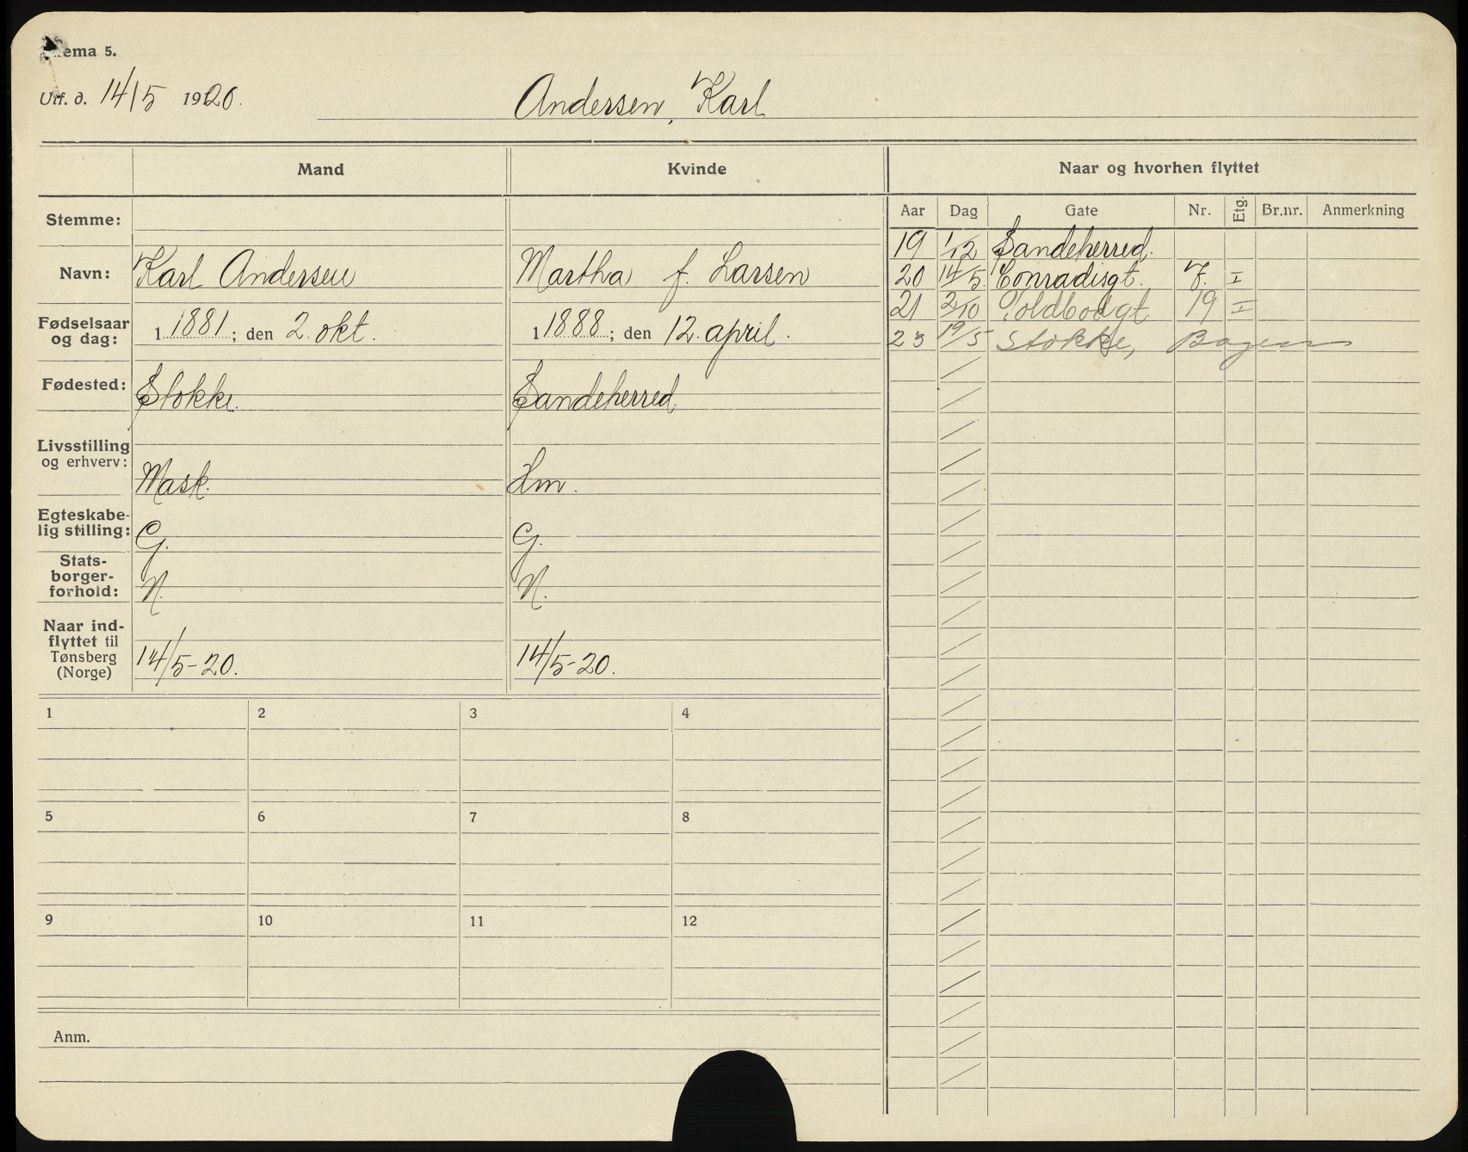 Skema 5.
Utf. d. 14/5 1920.
Andersen, Karl
Mand Kvinde Naar og hvorhen flyttet
Aar Dag Gate Nr. Etg. Br.nr. Anmerkning
Stemme:
Navn: Karl Andersen Martha f. Larsen
Fødselsaar
og dag: 1 1881; den 2. okt. 1 1888; den 12. april.
Fødested: Stokke. Sandeherred.
Livsstilling
og erhverv: Mask. Hm.
Egteskabe-
lig stilling: G. G.
Stats-
borger-
forhold: N. N.
Naar ind-
flyttet til
Tønsberg
(Norge) 14/5-20. 14/5-20.
19 1/12 Sandeherred.
20 14/5 Conradisgt. 7. I
21 2/10 Toldbodgt 19 I
23 19/5 Stokke,
1 2 3 4
5 6 7 8
9 10 11 12
Anm.